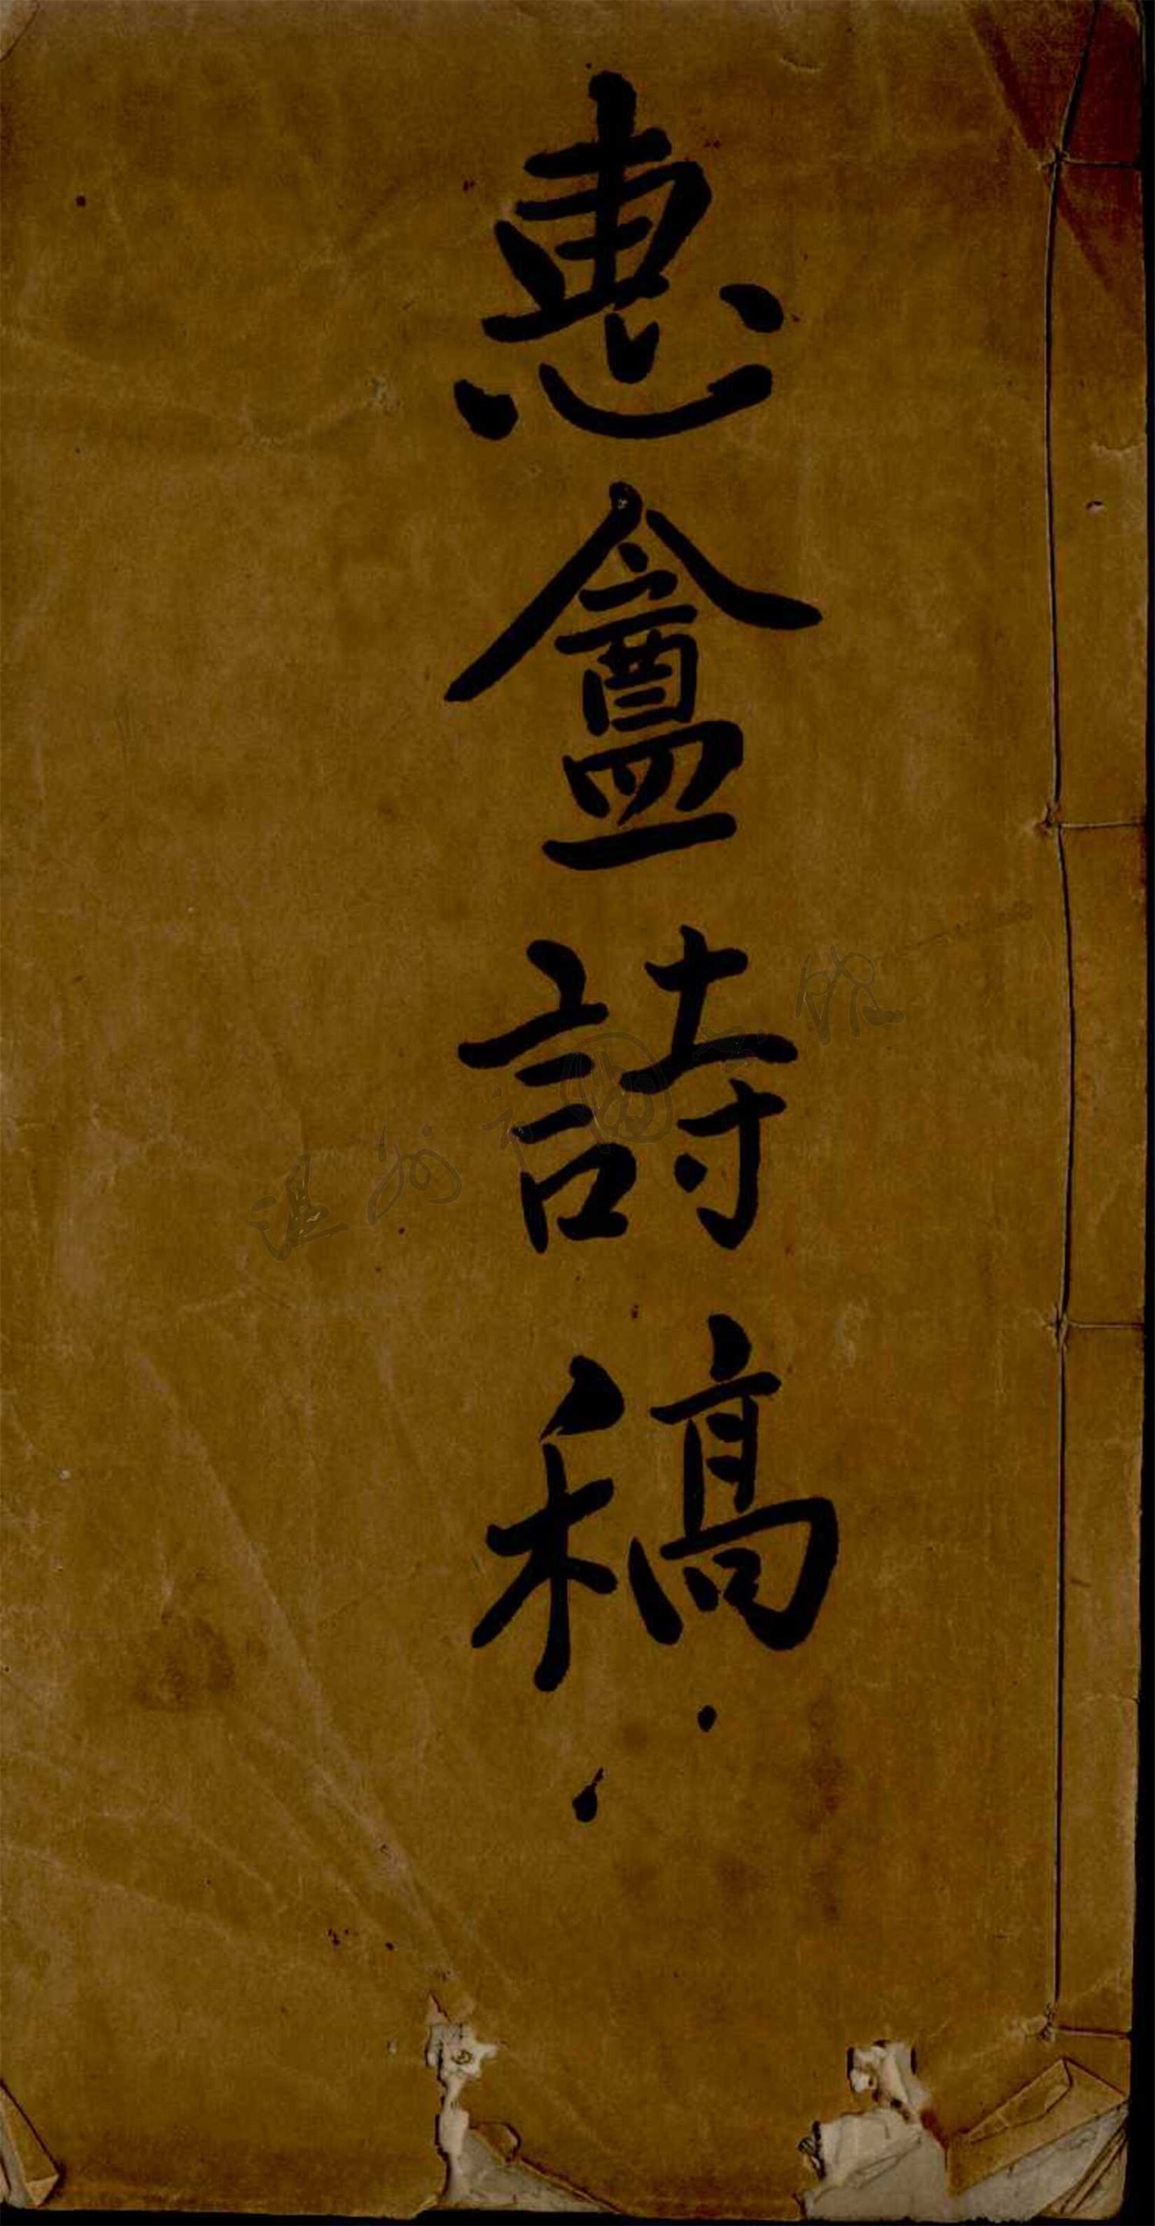 惠盦詩稿